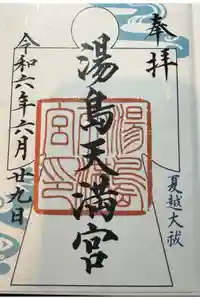 奉拝
夏越大祓
湯島天満宮
湯島天満宮印
令和六年六月廿九日